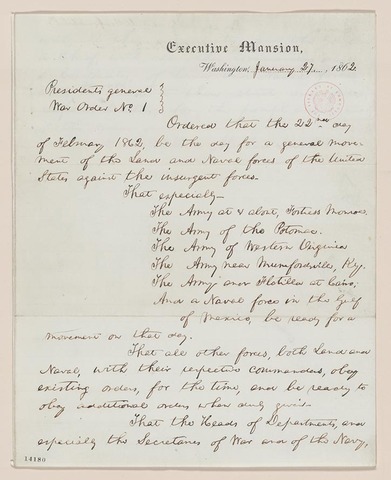 Executive Mansion,
Washington, January 27, 1862.
Presidents general
War Order No. 1
Ordered that the 22nd day
of February 1862, be the day for a general move-
ment of the Land and Naval forces of the United
States against the insurgent forces.
That especially—
The Army at & about, Fortress Monroe.
The Army of the Potomac.
The Army of Western Virginia
The Army near Munfordsville, Ky.
The Army and Flotilla at Cairo.
And a Naval force in the Gulf
of Mexico, be ready for a
movement on that day.
That all other forces, both Land and
Naval, with their respective commanders, obey
existing orders, for the time, and be ready to
obey additional orders when duly given.
That the Heads of Departments, and
especially the Secretaries of War and of the Navy,
14180